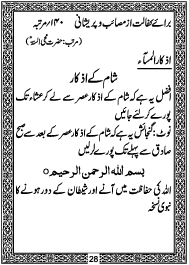 برائے کفالت از مصائب و پریشانی ۱۴۰ ار مرتبہ
(مرتب: حضرت محی السنۃؒ)
اذکار المسآء
شام کے اذکار
افضل یہ ہے کہ شام کے اذکار عصر سے لے کر عشاء تک
پورے کرلئے جائیں
نوٹ: گنجائش یہ ہے کہ شام کے اذکار عصر کے بعد سے صبح
صادق سے پہلے تک پورے کرلیں
بسم اللہ الرحمن الرحیم
اللہ کی حفاظت میں آنے اور شیطان کے دور ہونے کا
نبوی نسخہ
28